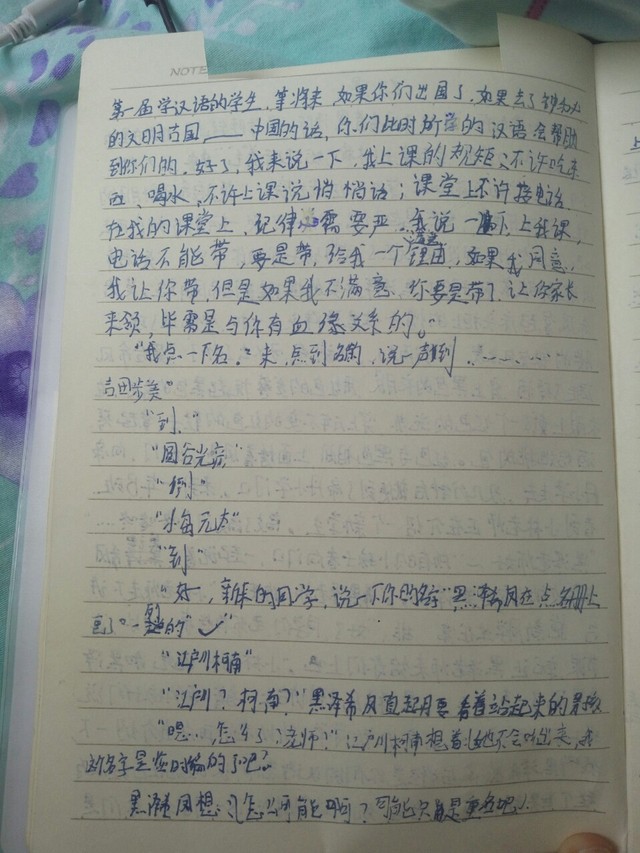 NOTE
第一届学汉语的学生,等将来,如果你们出国了,如果去了
的文明古国——中国的话,你们此时所学的汉语会帮助
到你们的,好了,我来说一下,我上课的规矩:不许吃东
西、喝水,不许上课说悄悄话;课堂上不许接电话
在我的课堂上,纪律需要严,我说一遍,上我课,
电话不能带,要是带,给我一个理由,如果我同意,
我让你带,但是如果我不满意,你要是带了,让你家长
来领,毕需是与你有血缘关系的。"
"我点一下名,来,点到名的,说一声到,…………
吉田步美"
"到."
"圆谷光彦"
"到"
"小岛元太"
"到"
"好,新来的同学,说一下你的名字"黑泽希凤在点名册上
画了一的"✓"
"江户川柯南"
"江户川?柯南?"黑泽希凤直起腰看着站起来的男孩
"嗯…,怎么了?老师?"江户川柯南想着:她不会听出来,我
的名字是临时编的了吧?
黑泽凤想:怎么可能啊?可能只是重名吧!